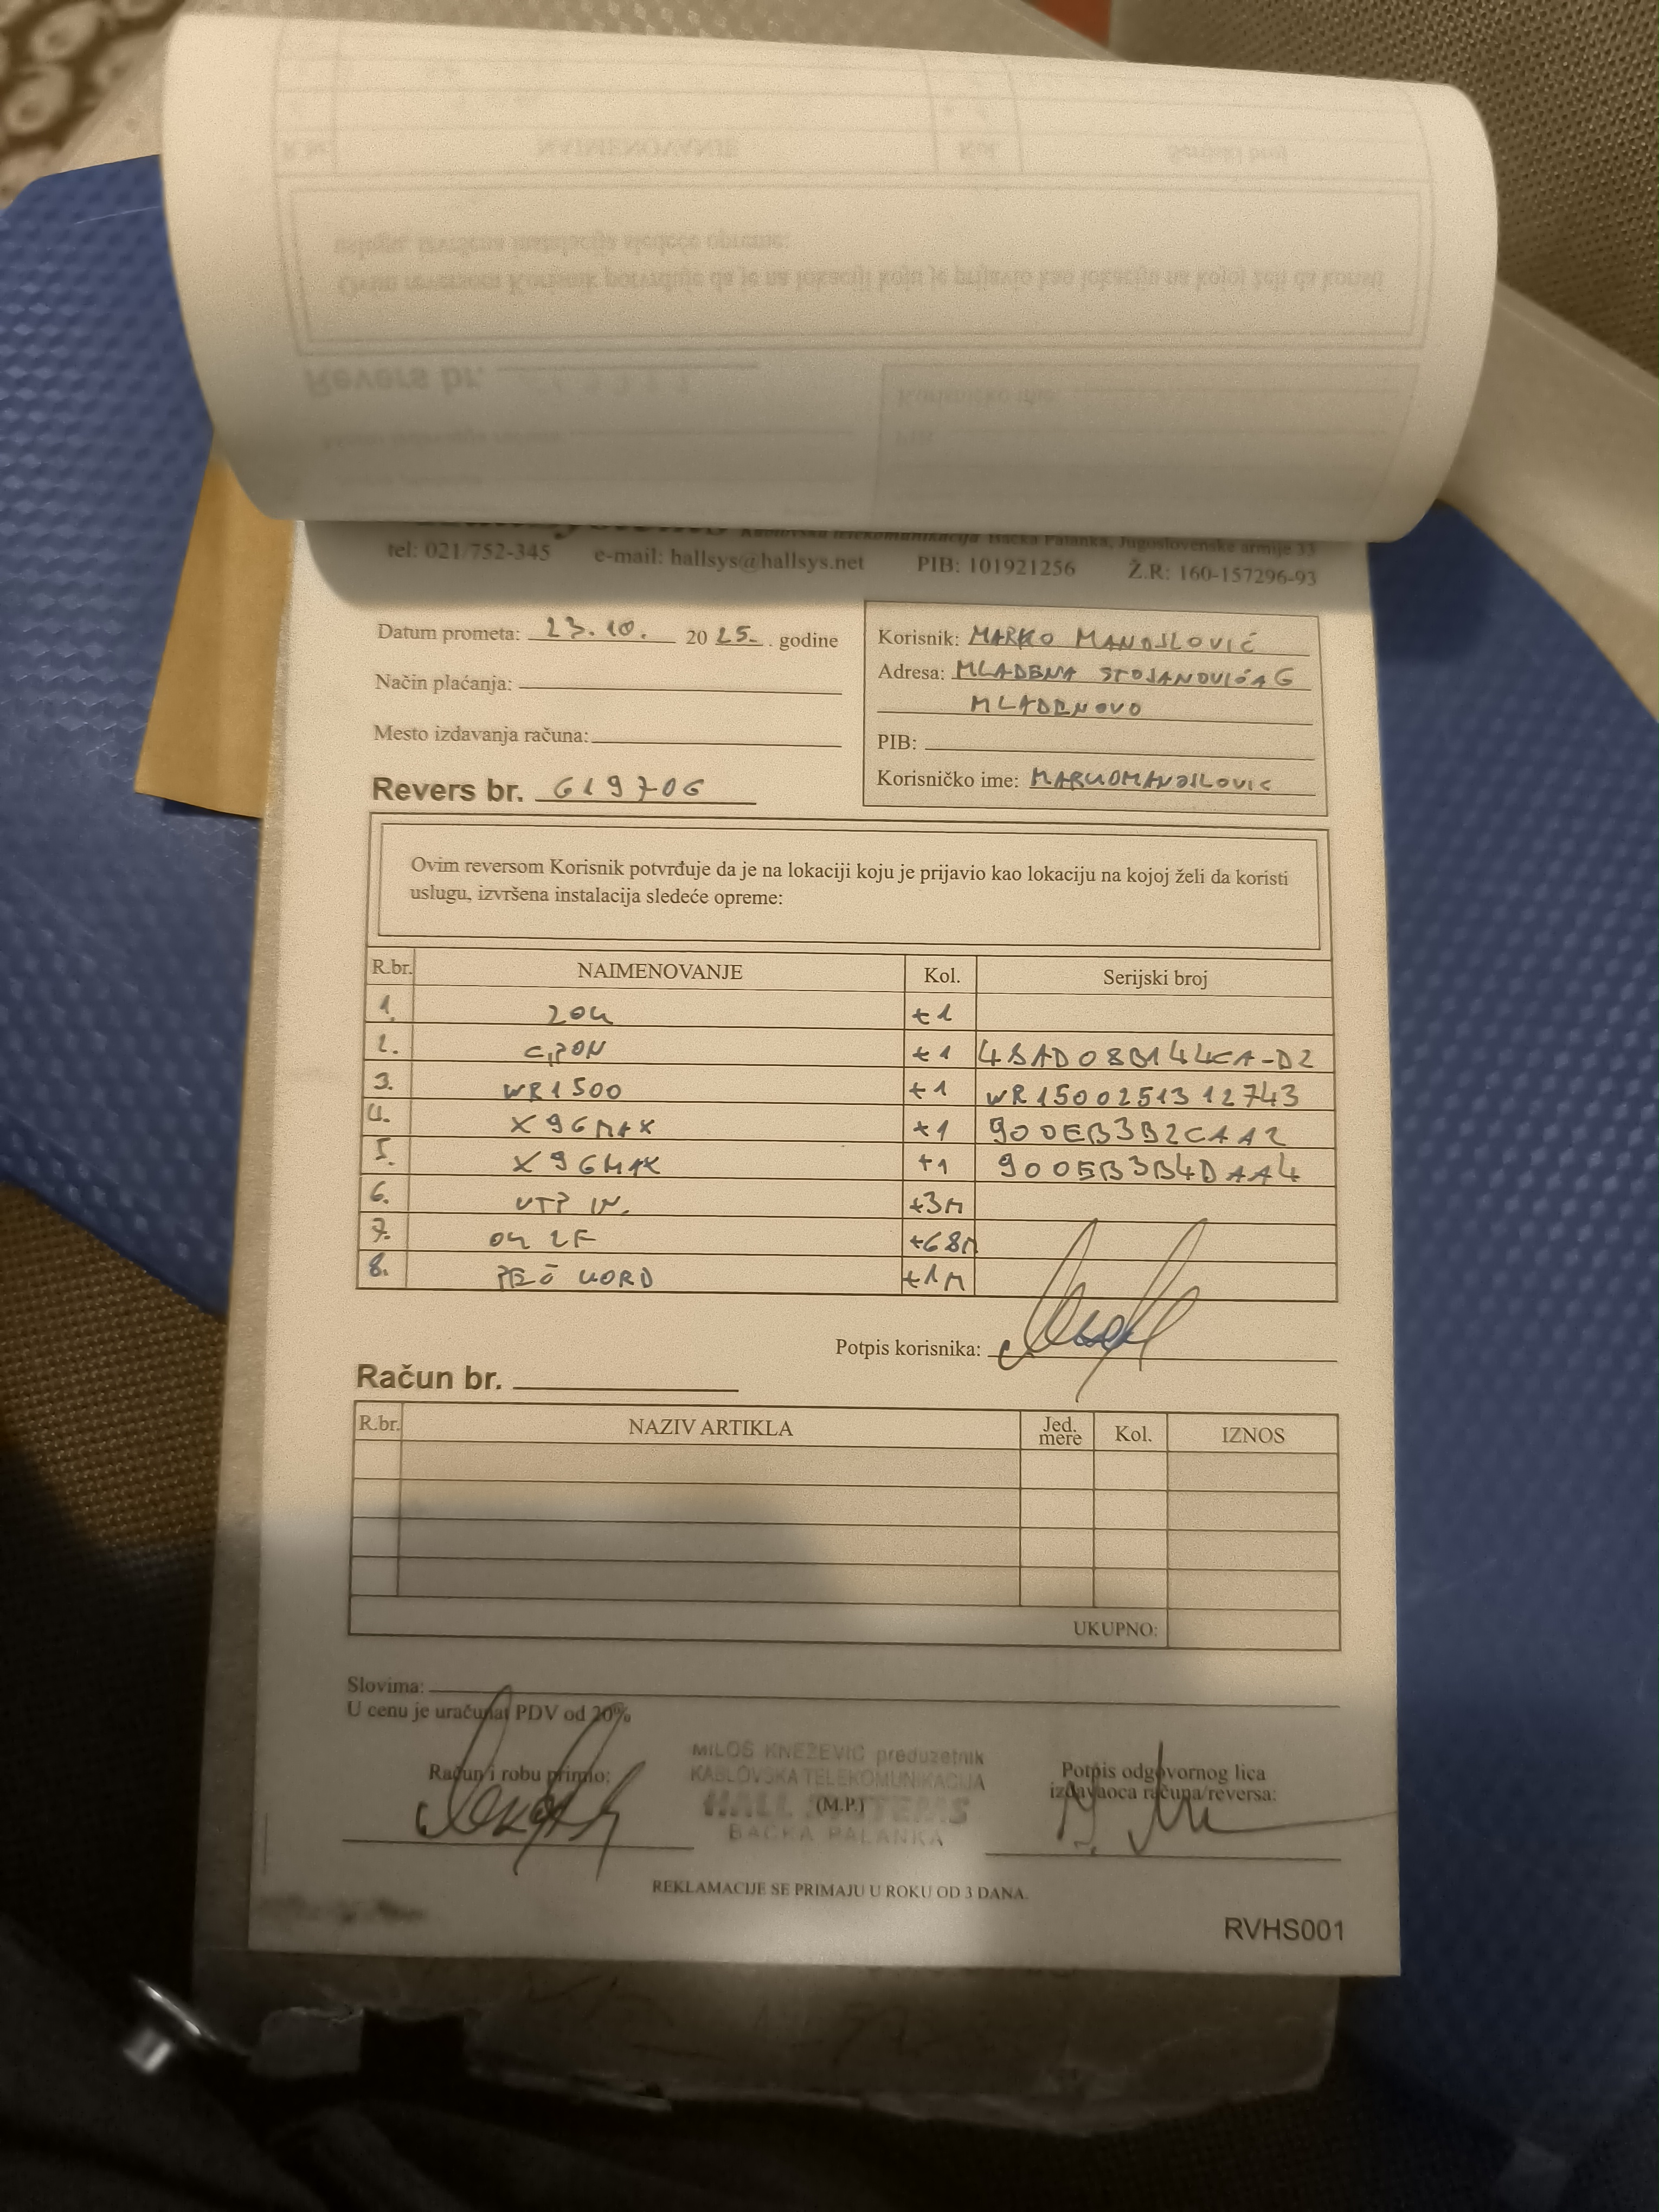 Kablovska telekomunikacija Bačka Palanka, Jugoslovenske armije 33
tel: 021/752-345 e-mail: hallsys@hallsys.net PIB: 101921256 Ž.R: 160-157296-93
Datum prometa: 23.10. 2025. godine
Način plaćanja:
Mesto izdavanja računa:
Revers br. 619706
Korisnik: MARKO MANOJLOVIĆ
Adresa: MLADENA STOJANOVIĆA 6
MLADENOVO
PIB:
Korisničko ime: MARKOMANOJLOVIC
Ovim reversom Korisnik potvrđuje da je na lokaciji koju je prijavio kao lokaciju na kojoj želi da koristi
uslugu, izvršena instalacija sledeće opreme:
R.br. NAIMENOVANJE Kol. Serijski broj
1. ZOK +1
2. GPON +1 48AD08B144CA-D2
3. WR1500 +1 WR1500251312743
4. X96MAX +1 900EB3B2CAA2
5. X96MAX +1 900EB3B4DAA4
6. UTP IN. +3M
7. OK 2F +68M
8. PEČ KORD +1M
Potpis korisnika:
Račun br.
R.br. NAZIV ARTIKLA Jed. mere Kol. IZNOS
UKUPNO:
Slovima:
U cenu je uračunat PDV od 20%
Račun i robu primio:
MILOŠ KNEŽEVIĆ preduzetnik
KABLOVSKA TELEKOMUNIKACIJA
(M.P.)
HALL SYSTEMS
BAČKA PALANKA
Potpis odgovornog lica
izdavaoca računa/reversa:
REKLAMACIJE SE PRIMAJU U ROKU OD 3 DANA.
RVHS001